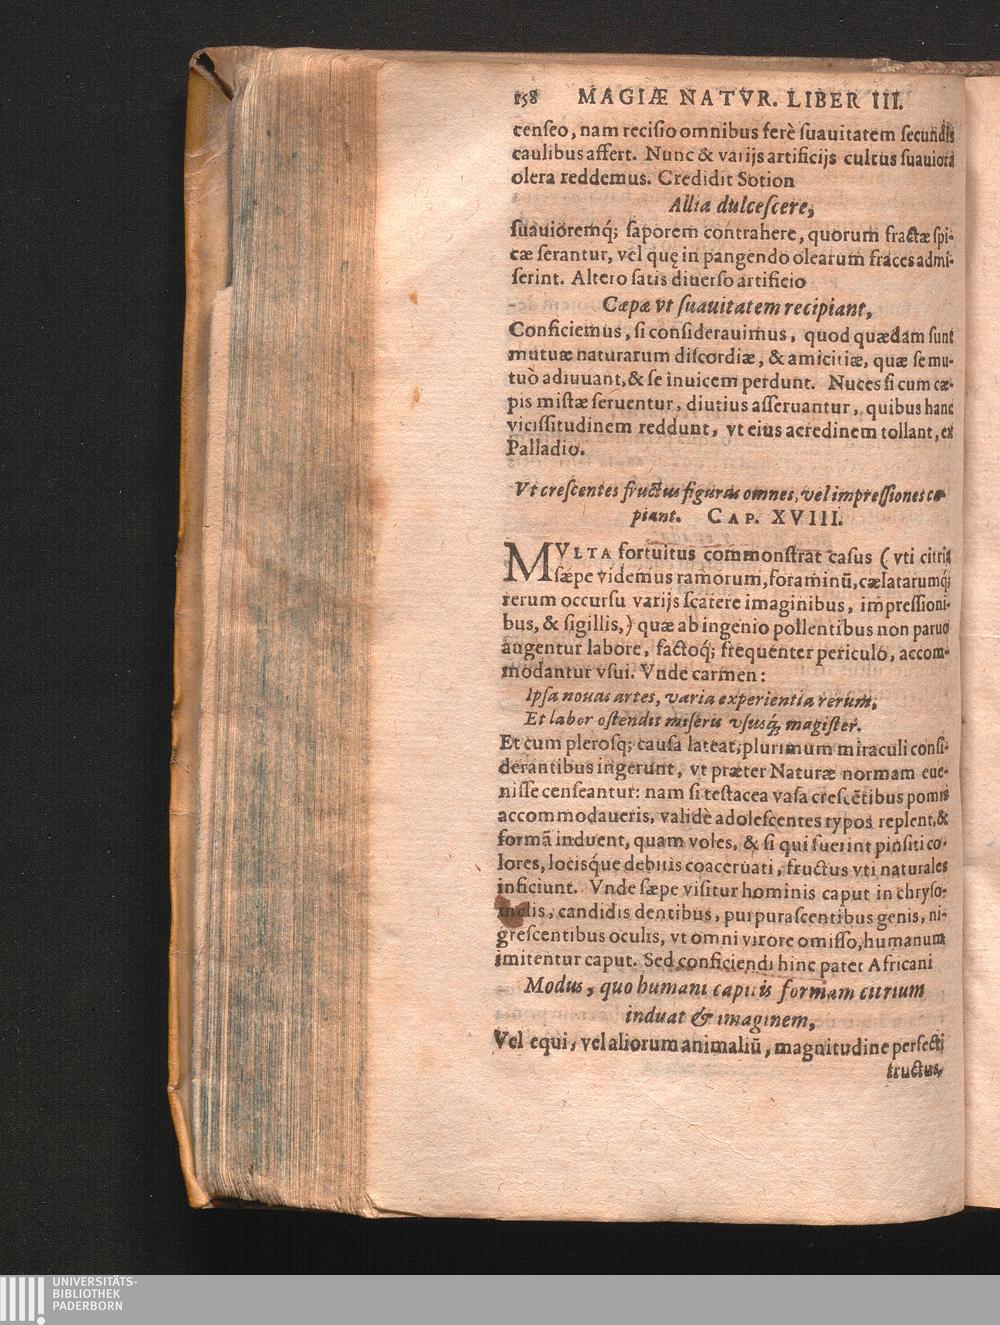 158 MAGIÆ NATVR. LIBER III.
cenſeo, nam reciſio omnibus ferè ſuauitatem ſecundis
caulibus affert. Nunc & varijs artificijs cultus ſuauiora
olera reddemus. Credidit Sotion
Allia dulceſcere,
ſuauioremq́; ſaporem contrahere, quorum fractæ ſpi-
cæ ſerantur, vel quę in pangendo olearum fraces admi-
ſerint. Altero ſatis diuerſo artificio
Cæpæ vt ſuauitatem recipiant,
Conficiemus, ſi conſiderauimus, quod quædam ſunt
mutuæ naturarum diſcordiæ, & amicitiæ, quæ ſe mu-
tuò adiuuant, & ſe inuicem perdunt. Nuces ſi cum cæ-
pis miſtæ ſeruentur, diutius aſſeruantur, quibus hanc
viciſſitudinem reddunt, vt eius acredinem tollant, ex
Palladio.
Vt creſcentes fructus figuras omnes, vel impreſſiones ca-
piant. CAP. XVIII.
MVLTA fortuitus commonſtrat caſus (vti citria
ſæpe videmus ramorum, foraminū, cælatarumq́;
rerum occurſu varijs ſcatere imaginibus, impreſſioni-
bus, & ſigillis,) quæ ab ingenio pollentibus non paruo
augentur labore, factoq́; frequenter periculo, accom-
modantur vſui. Vnde carmen:
Ipſa nouas artes, varia experientia rerum,
Et labor oſtendit miſeris vſusq́; magiſter.
Et cum pleroſq; cauſa lateat, plurimum miraculi conſi-
derantibus ingerunt, vt præter Naturæ normam eue-
niſſe cenſeantur: nam ſi teſtacea vaſa creſcētibus pomis
accommodaueris, validè adoleſcentes typos replent, &
formā induent, quam voles, & ſi qui fuerint pinſiti co-
lores, lociſq́ue debitis coaceruati, fructus vti naturales
inficiunt. Vnde ſæpe viſitur hominis caput in chryſo-
melis, candidis dentibus, purpuraſcentibus genis, ni-
greſcentibus oculis, vt omni virore omiſſo, humanum
imitentur caput. Sed conficiendi hinc patet Africani
Modus, quo humani capitis formam citrium
induat & imaginem,
Vel equi, vel aliorum animaliū, magnitudine perfecti
fructus,
UNIVERSITÄTS-
BIBLIOTHEK
PADERBORN